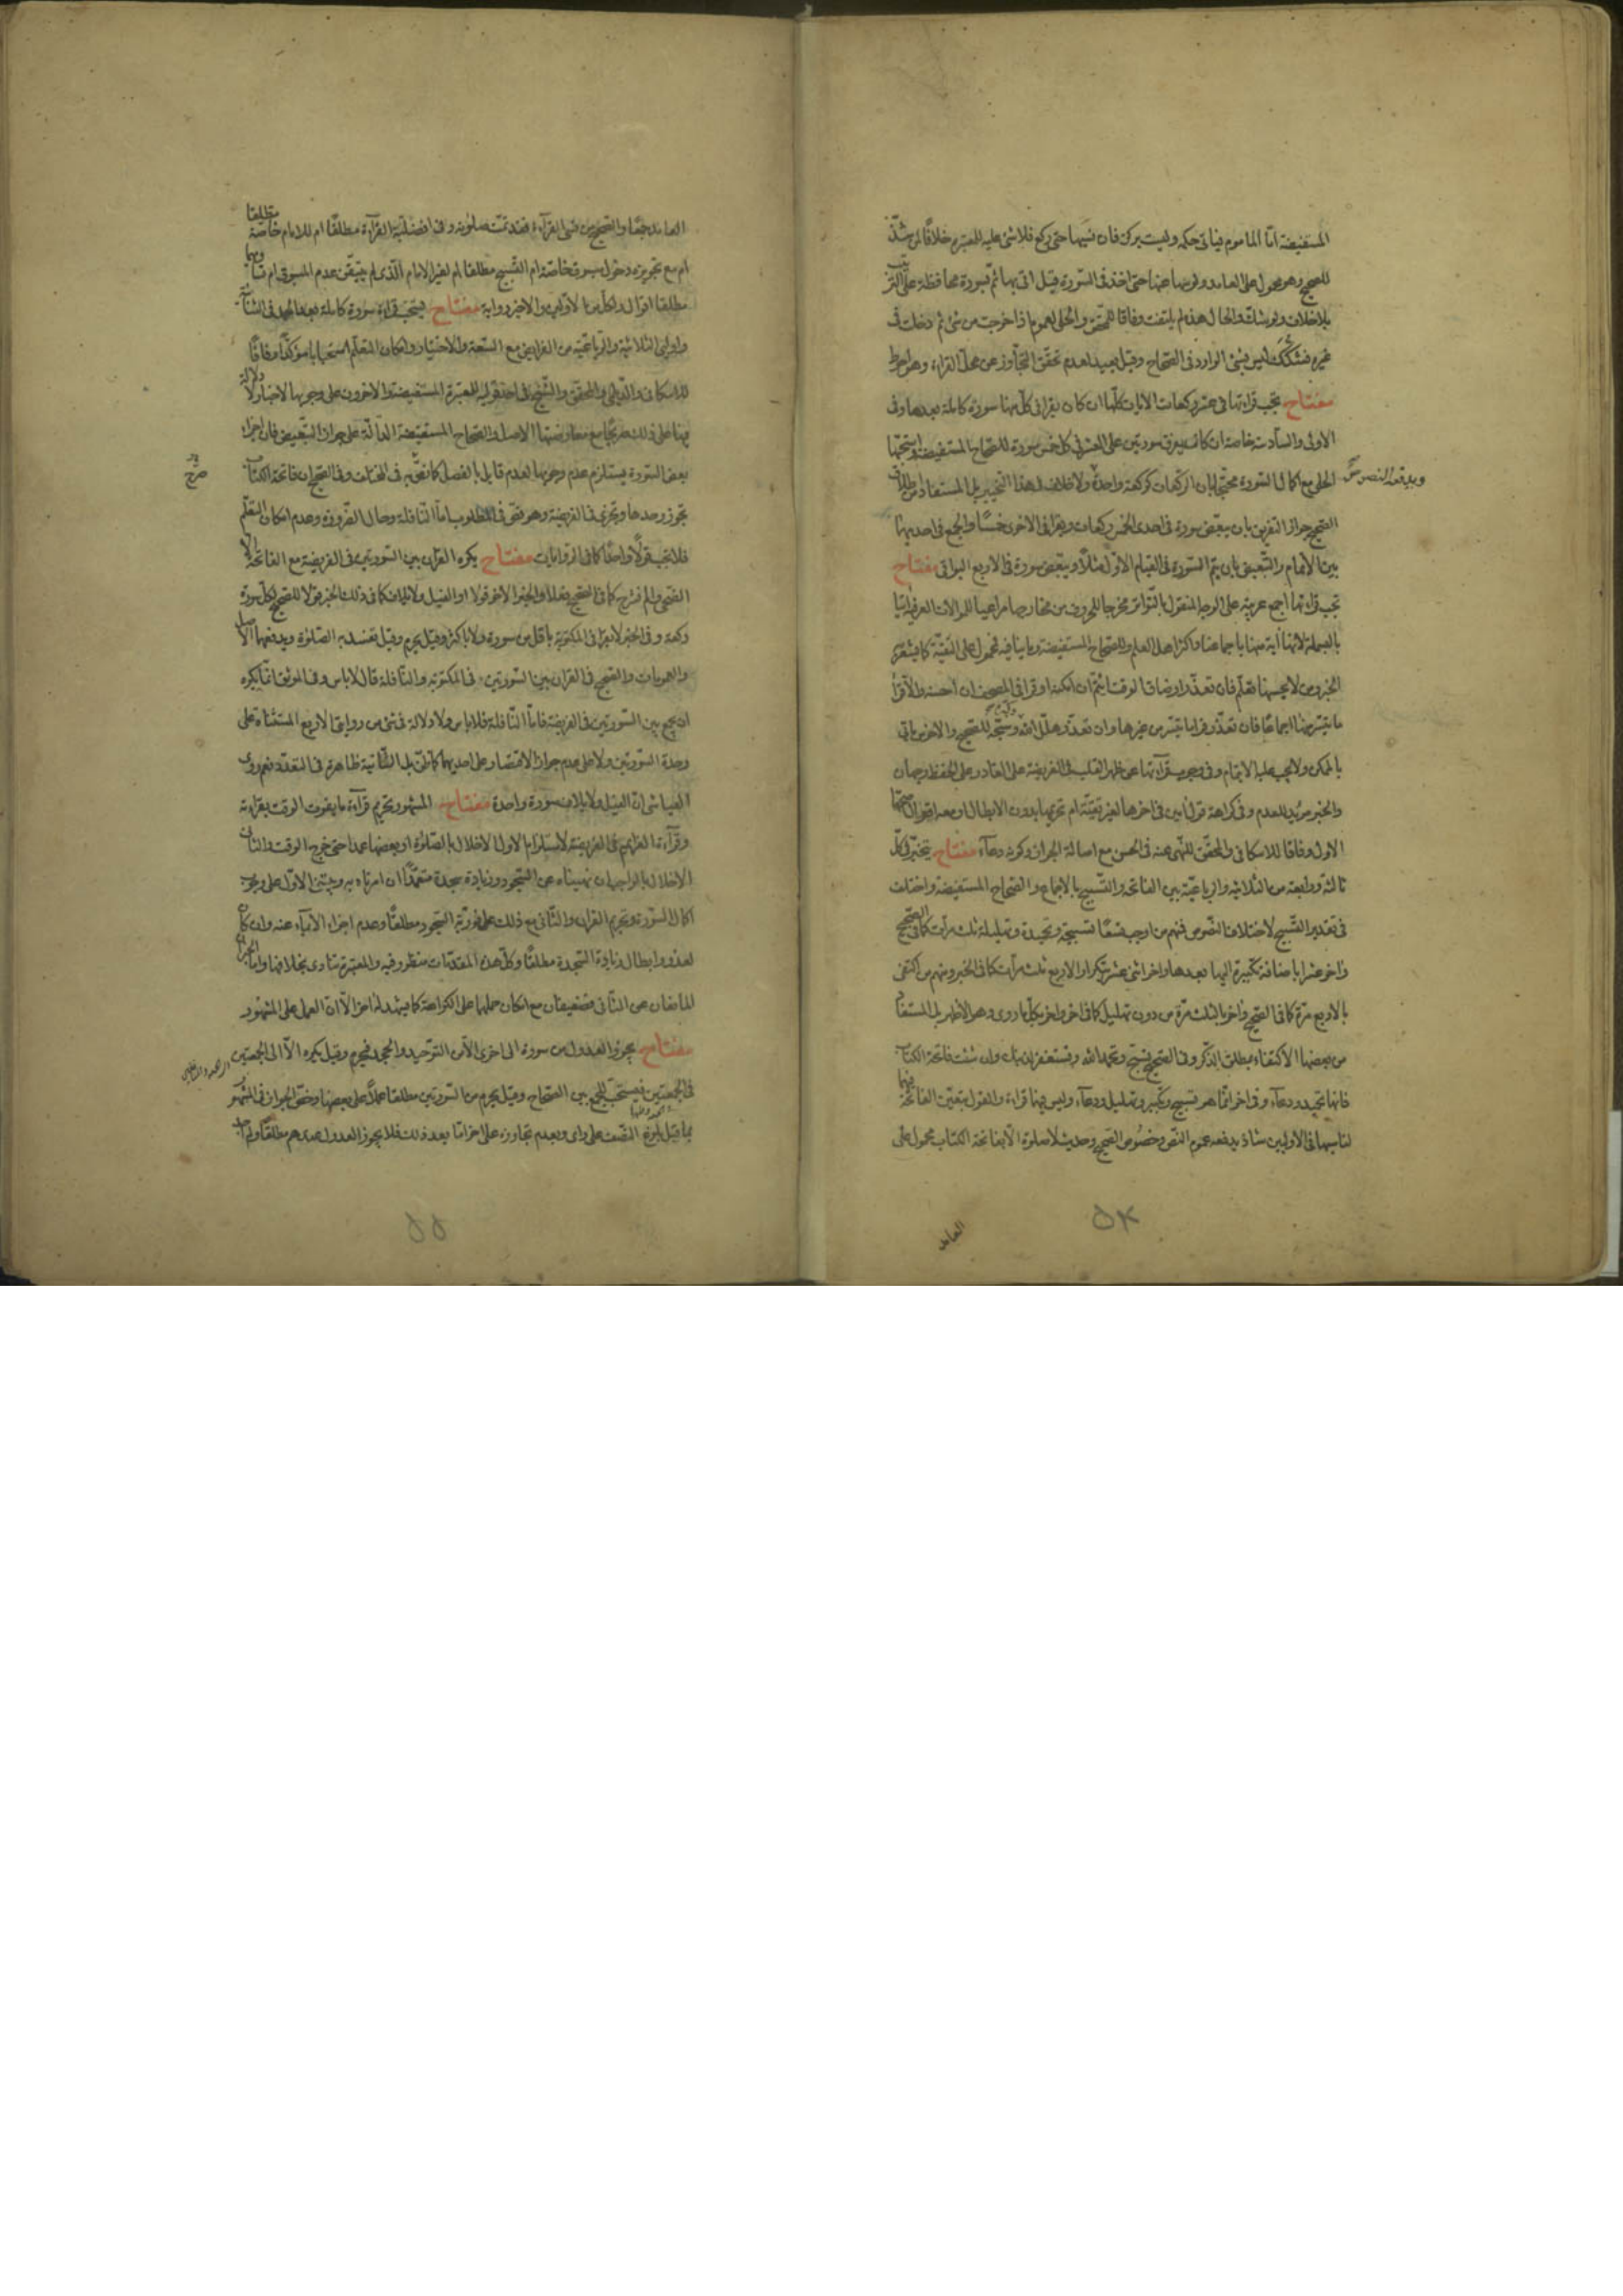 المستفيضة امّا الماموم فياتى حكمه وليست بركن فان نسيها حتى ركع فلا شئ عليه للمعتبرة خلافا لمن شذّ
للصحيح وهو محمول على العامد ولو سها عنها حتى اخذ فى السورة قيل اتى بها ثم بسورة محافظة على الترتيب
بلا خلاف ولو شك والحال هذه لم يلتفت وفاقا للمحقق والحلى لعموم اذا خرجت من شئ ثم دخلت فى
غيره فشكك ليس بشئ الوارد فى الصحاح وقيل يعيد لعدم تحقق التجاوز عن محل القراءة وهو احوط
مفتاح تجب قراءتها فى عشر ركعات الايات كلها ان كان يقرا فى كل منها سورة كاملة بعدها وفى
الاولى والسادسة خاصة ان كان يفرق سورتين على العشر فى كل خمس سورة للصحاح المستفيضة واستحبها
الحلى مع اكمال السورة محتجا بان الركعات كركعة واحدة ولا خلاف فى هذا التخيير بل المستفاد من اطلاق
ويدفعه النصوص
الصحيح جواز التفريق بان يبعض سورة فى احدى الخمس ركعات ويقرا فى الاخرى خمسا والجمع فى احديهما
بين الاتمام والتبعيض بان يتم السورة فى القيام الاول مثلا ويبعض سورة فى الاربع البواقى مفتاح
تجب قراءتها اجمع عربية على الوجه المنقول بالتواتر مخرجا للحروف من مخارجها مراعيا للموالات العرفية اتيا
بالبسملة لانها اية منها باجماعنا واكثر اهل العلم وللصحاح المستفيضة وما ينافيه فمحمول على التقية كما يشعر به
الخبر ومن لا يحسنها تعلم فان تعذر او ضاق الوقت ائتم ان امكنه او قرا فى المصحف ان احسنه والا قرا
ما تيسر منها اجماعا فان تعذر قرا ما تيسر من غيرها وان تعذر هلل الله وكبّره وسبّحه للصحيح والاخرس ياتى
بالممكن ولا يجب عليه الايتمام وفى وجوب قراءتها عن ظهر القلب فى الفريضة على القادر على الحفظ وجهان
والخبر مؤيد للعدم وفى كراهة قول امين فى اخرها لغير تقية ام تحريمها بدون الابطال او معه اقوال اصحها
الاول وفاقا للاسكافى والمحقق للنهى عنه فى الحسن مع اصالة الجواز وكونه دعاء مفتاح يتخير فى كل
ثالثة ورابعة من الثلاثية والرباعية بين الفاتحة والتسبيح بالاجماع والصحاح المستفيضة واختلف
فى تقدير التسبيح لاختلاف النصوص فمنهم من اوجب تسعا تسبيحة وتحميدة وتهليلة ثلث مرات كما فى الصحيح
واخر عشرا باضافة تكبيرة اليها بعدها واخر اثنى عشر بتكرار الاربع ثلث مرات كما فى الخبر ومنهم من اكتفى
بالاربع مرة كما فى الصحيح واخر بالثلث مرة من دون تهليل كما فى اخر واخر بكل ما روى وهو الاظهر بل المستفاد
من بعضها الاكتفاء بمطلق الذكر وفى الصحيح تسبح وتحمد الله وتستغفر لذنبك وان شئت فاتحة الكتاب
فانها تحميد ودعاء وفى اخر انما هو تسبيح وتكبير وتهليل ودعاء وليس فيها قراءة والقول بتعين الفاتحة فيها
لناسيها فى الاوليين شاذ يدفعه عموم النص وخصوص الصحيح وحديث لا صلوة الا بفاتحة الكتاب محمول على
العامد
٥٤
العامد جمعا والصحيح من نسى القراءة فقد تمت صلوته وفى افضلية القراءة مطلقا ام للامام خاصة مطلقا
ام مع تجويزه دخول مسبوق خاصة ام التسبيح مطلقا ام لغير الامام الذى لم يتيقن عدم المسبوق ام تساويهما
مطلقا اقوال ولكل من الاولين والاخير رواية مفتاح يستحب قراءة سورة كاملة بعد الحمد فى الثنائية
واوليى الثلاثية والرباعية من الفرايض مع السعة والاختيار وامكان التعلم استحبابا مؤكدا وفاقا
للاسكافى والديلمى والمحقق والشيخ فى احد قوليه للمعتبرة المستفيضة والاخرون على وجوبها لاخبار لا دلالة
فيها على ذلك صريحا مع معارضتها الاصل والصحاح المستفيضة الدالة على جواز التبعيض فان اجزاء
صريح
بعض السورة يستلزم عدم وجوبها لعدم قايل بالفصل كما نص به فى المختلف وفى الصحيح ان فاتحة الكتاب
تجوز وحدها وتجزى فى الفريضة وهو نص فى المطلوب اما النافلة وحال الضرورة وعدم امكان التعلم
فلا تجب قولا واحدا كما فى الروايات مفتاح يكره القران بين السورتين فى الفريضة مع الفاتحة الا
الضحى والم نشرح كما فى الصحيح فعلا والخبر الاخر قولا او الفيل ولايلاف كما فى ذلك الخبر قولا للصحيح لكل سورة
ركعة وفى الخبر لا يقرا فى المكتوبة باقل من سورة ولا باكثر وقيل يحرم وقيل تفسد به الصلوة ويدفعهما الاصل
والعمومات والصحيح فى القران بين السورتين فى المكتوبة والنافلة قال لا باس وفى الموثق انما يكره
ان يجمع بين السورتين فى الفريضة فاما النافلة فلا باس ولا دلالة فى شئ من روايتى الاربع المستثناة على
وحدة السورتين ولا على عدم جواز الاقتصار على احديهما كما ظن بل الثانية ظاهرة فى التعدد نعم روى
العياشى ان الفيل ولايلاف سورة واحدة مفتاح المشهور تحريم قراءة ما يفوت الوقت بقراءته
وقراءة العزايم فى الفريضة لاستلزام الاول الاخلال بالصلوة او بعضها عمدا حتى خرج الوقت والثانى
الاخلال بالواجب ان نهيناه عن السجود وزيادة سجدة متعمدا ان امرناه به ويبتنى الاول على وجوب
اكمال السورة وتحريم القران والثانى مع ذلك على فورية السجود مطلقا وعدم اجزاء الايماء عنه وان كان
لعذر وابطال زيادة السجدة مطلقا وكل هذه المقدمات منظور فيه والمعتبرة تنادى بخلافها واما الخبران
المانعان عن الثانى فضعيفان مع امكان حملها على الكراهة كما يشهد له اخر الا ان العمل على المشهور
مفتاح يجوز العدول من سورة الى اخرى الا من التوحيد والجحد فيحرم وقيل يكره الا الى الجمعتين
فى الجمعتين فيستحب للجمع بين الصحاح وقيل يحرم من السورتين مطلقا عملا على بعضها وخص الجواز فى المشهور
بما قبل بلوغ النصف على راى وبعدم تجاوزه على اخر اما بعد ذلك فلا يجوز العدول عندهم مطلقا ولم
٥٥